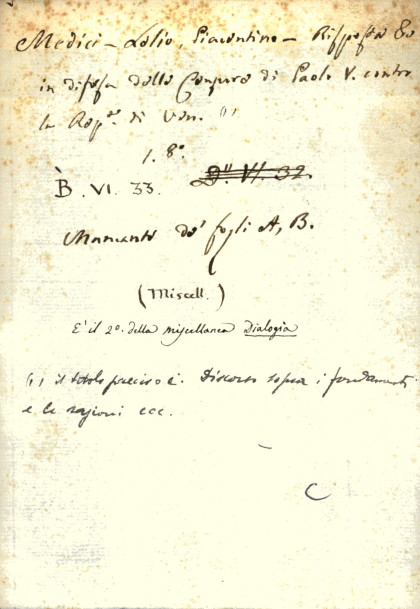 Medici - Lelio, Piacentino - Risposta &c
in difesa delle Censure di Paolo V. contro
la Rep.ca di Ven. (1)
1. 8º
B. VI. 33. D. VI. 32.
Mancante de' fogli A, B.
(Miscell.)
E' il 2º. della miscellanea Dialogia
(1) il titolo preciso è. Discorso sopra i fondamenti
e le ragioni ecc.
C